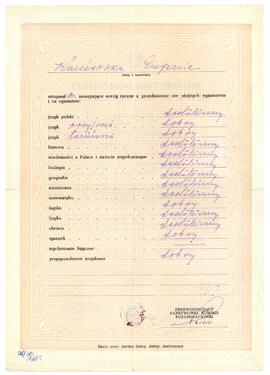 Eugenia
imię i nazwisko
otrzymał następujące oceny roczne z przedmiotów nie objętych egzaminem
i na egzaminie:
język polski dostateczny
język dobry
język łaciński dobry
historia dostateczny
wiadomości o Polsce i świecie współczesnym dostateczny
biologia dostateczny
geografia dostateczny
astronomia dostateczny
matematyka dostateczny
logika dobry
fizyka dostateczny
chemia dobry
rysunek dostateczny
wychowanie fizyczne dobry
przysposobienie wojskowe dobry
PRZEWODNICZĄCY
PAŃSTWOWEJ KOMISJI
EGZAMINACYJNEJ
Skala ocen: bardzo dobry, dobry, dostateczny